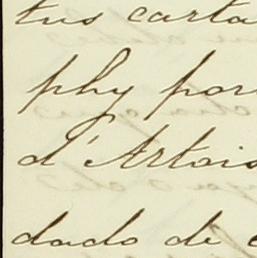 tus carta
phy por
d'Artois
dado de